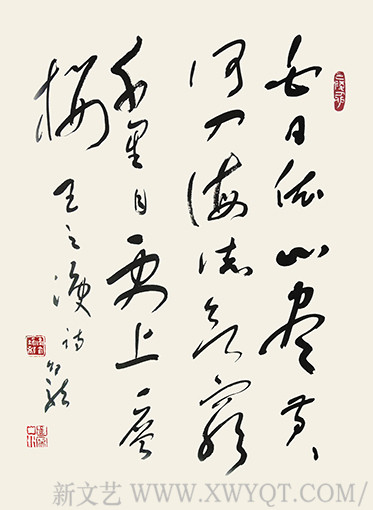 白日依山尽黄
河入海流欲穷
千里目更上一层
楼
王之涣诗
新文艺 WWW.XWYQT.COM/